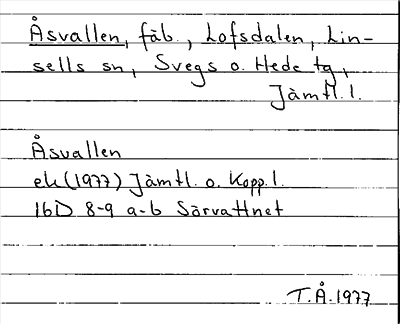 Åsvallen, fäb., Lofsdalen, Lin-
sells sn, Svegs o. Hede tg,
Jämtl. l.
Åsvallen
ek (1977) Jämtl. o. Kopp. l.
16D 8-9 a-b Sörvattnet
T.Å. 1977